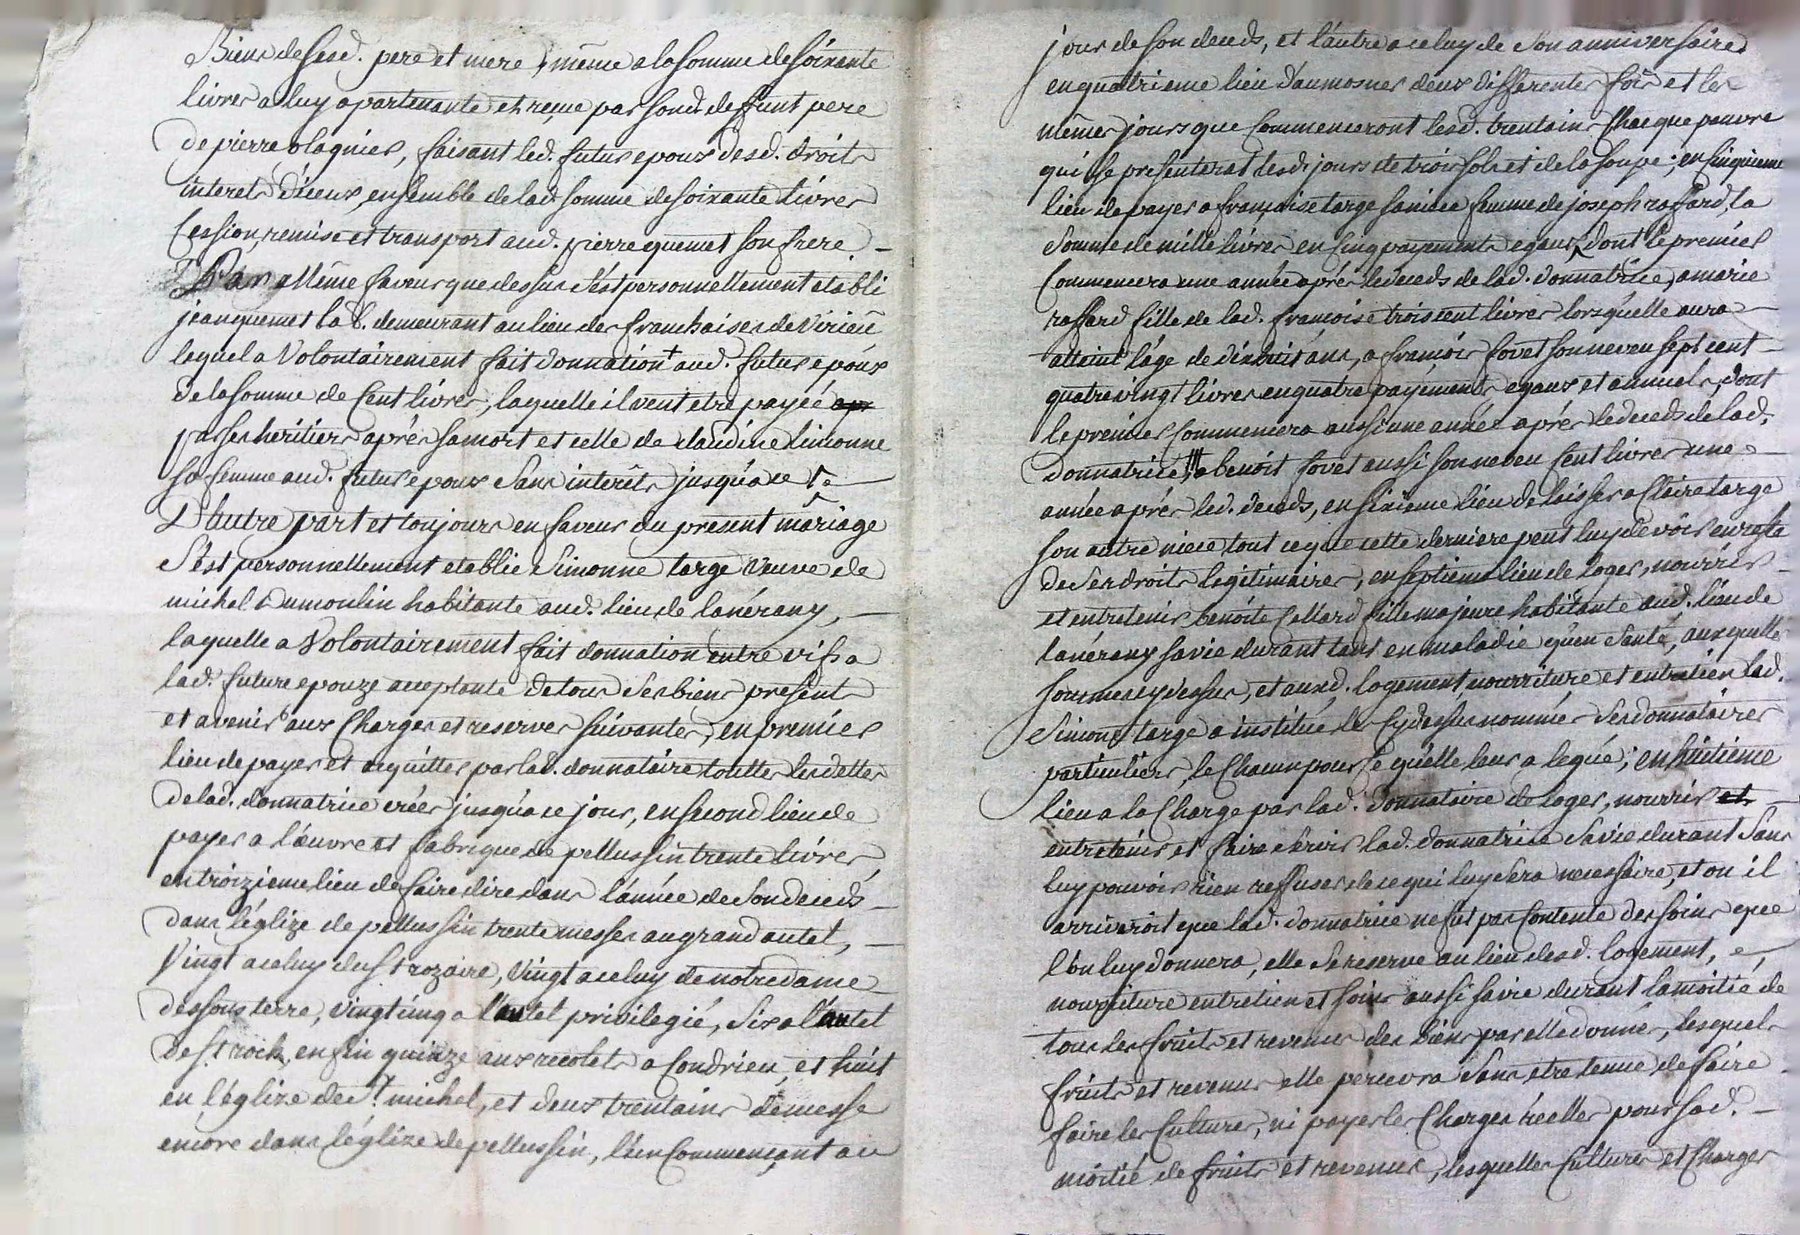 Biens desesd. pere et mere, même a la somme de soixante
livres a luy apartenante et reçue par sond. deffunt pere
de pierre olagnier, faisant led. futur epoux desd. droits
interets d'iceux, ensemble de lad. somme de soixante livres
Cession, remise et transport aud. pierre quemet son frere.
Par a même faveur que dessus s'est personnellement etabli
jean quemet la b. demeurant au lieu des franchaises de Virieu
lequel a Volontairement fait donnation + aud. futur epoux
de la somme de Cent livres, laquelle il veut etre payée apr
par ses heritiers aprés sa mort et celle de claudine simonne
sa femme aud. futur epoux sans interêts jusqu'a ce
D'autre part et toujours en faveur du present mariage
s'est personnellement etablie simonne targe Veuve de
michel Dumoulin habitante aud. lieu de lanérany,
laquelle a Volontairement fait donnation entre vifs a
lad. future epouze acceptante de tous ses biens presents
et avenir aux Charges et reserves suivantes, en premier
lieu de payer et acquitter par lad. donnataire touttes les dettes
de lad. donnatrice créés jusqu'a ce jour, en second lieu de
payer a l'œuvre et fabrique de pellussin trente livres
en troizieme lieu de faire dire dans l'année de son decés
dans l'églize de pellussin trente messes au grand autel,
Vingt a celuy du St rozaire, Vingt a celuy de notre dame
dessous terre, vingt cinq a l'autel privilegié, six a l'autel
de St rock, enfin quinze aux recolets a Condrieu, et huit
en l'églize de St michel, et deux trentains de messe
encore dans l'églize de pellussin, l'un Commençant au
jour de son deceds, et l'autre a celuy de son anniversaire
en quatrieme lieu d'aumosner deux differentes fois et les
mêmes jours que Commenceront lesd. trentains Chaque pauvre
qui se presenterat lesd. jours de trois sols et de la soupe; en sinquieme
lieu de payer a françoise targe sa niece femme de joseph raffard, la
somme de mille livres en sinq payements egaux, dont le premier
Commencera une année aprés le deceds de lad. donnatrice, a marie
raffard fille de lad. francoise trois cent livres lorsqu'elle aura
atteint l'âge de dixhuit ans, a francois fovet son neveu sept cent
quatre vingt livres en quatre payements egaux et annuels, dont
le premier Commencera aussi une année aprés le deceds de lad.
donnatrice, a benoit fovet aussi son neveu Cent livres une
année aprés led. deceds, en sixieme lieu de laisser a Claire targe
son autre niece tout ce que cette derniere peut luy devoir en reste
de ses droits legitimaires, en septieme lieu de loger, nourrir
et entretenir benoite Cellard fille majeure habitante aud. lieu de
lanérany sa vie durant tant en maladie qu'en santé, auxquelles
sommes cy dessus, et auxd. logement nourriture et entretien lad.
Simone targe a institué les Cy dessus nommés ses donnataires
particuliers, le Chacun pour ce qu'elle leur a legué; en huitieme
lieu a la Charge par lad. donnataire de loger, nourrir et
entretenir et faire servir lad. donnatrice sa vie durant sans
luy pouvoir rien reffuser de ce qui luy sera necessaire, et ou il
arriveroit que lad. donnatrice ne fut pas Contente des soins que
l'on luy donnera, elle se reserve au lieu desd. logement,
nourriture entretien et soins aussi sa vie durant la moitié de
tous les fruits et revenus des biens par elle donnés, lesquels
fruits et revenus elle percevra sans etre tenue de faire
faire les Cultures, ni payer les Charges réelles pour sad.
moitié de fruits et revenus, lesquelles Cultures et Charges